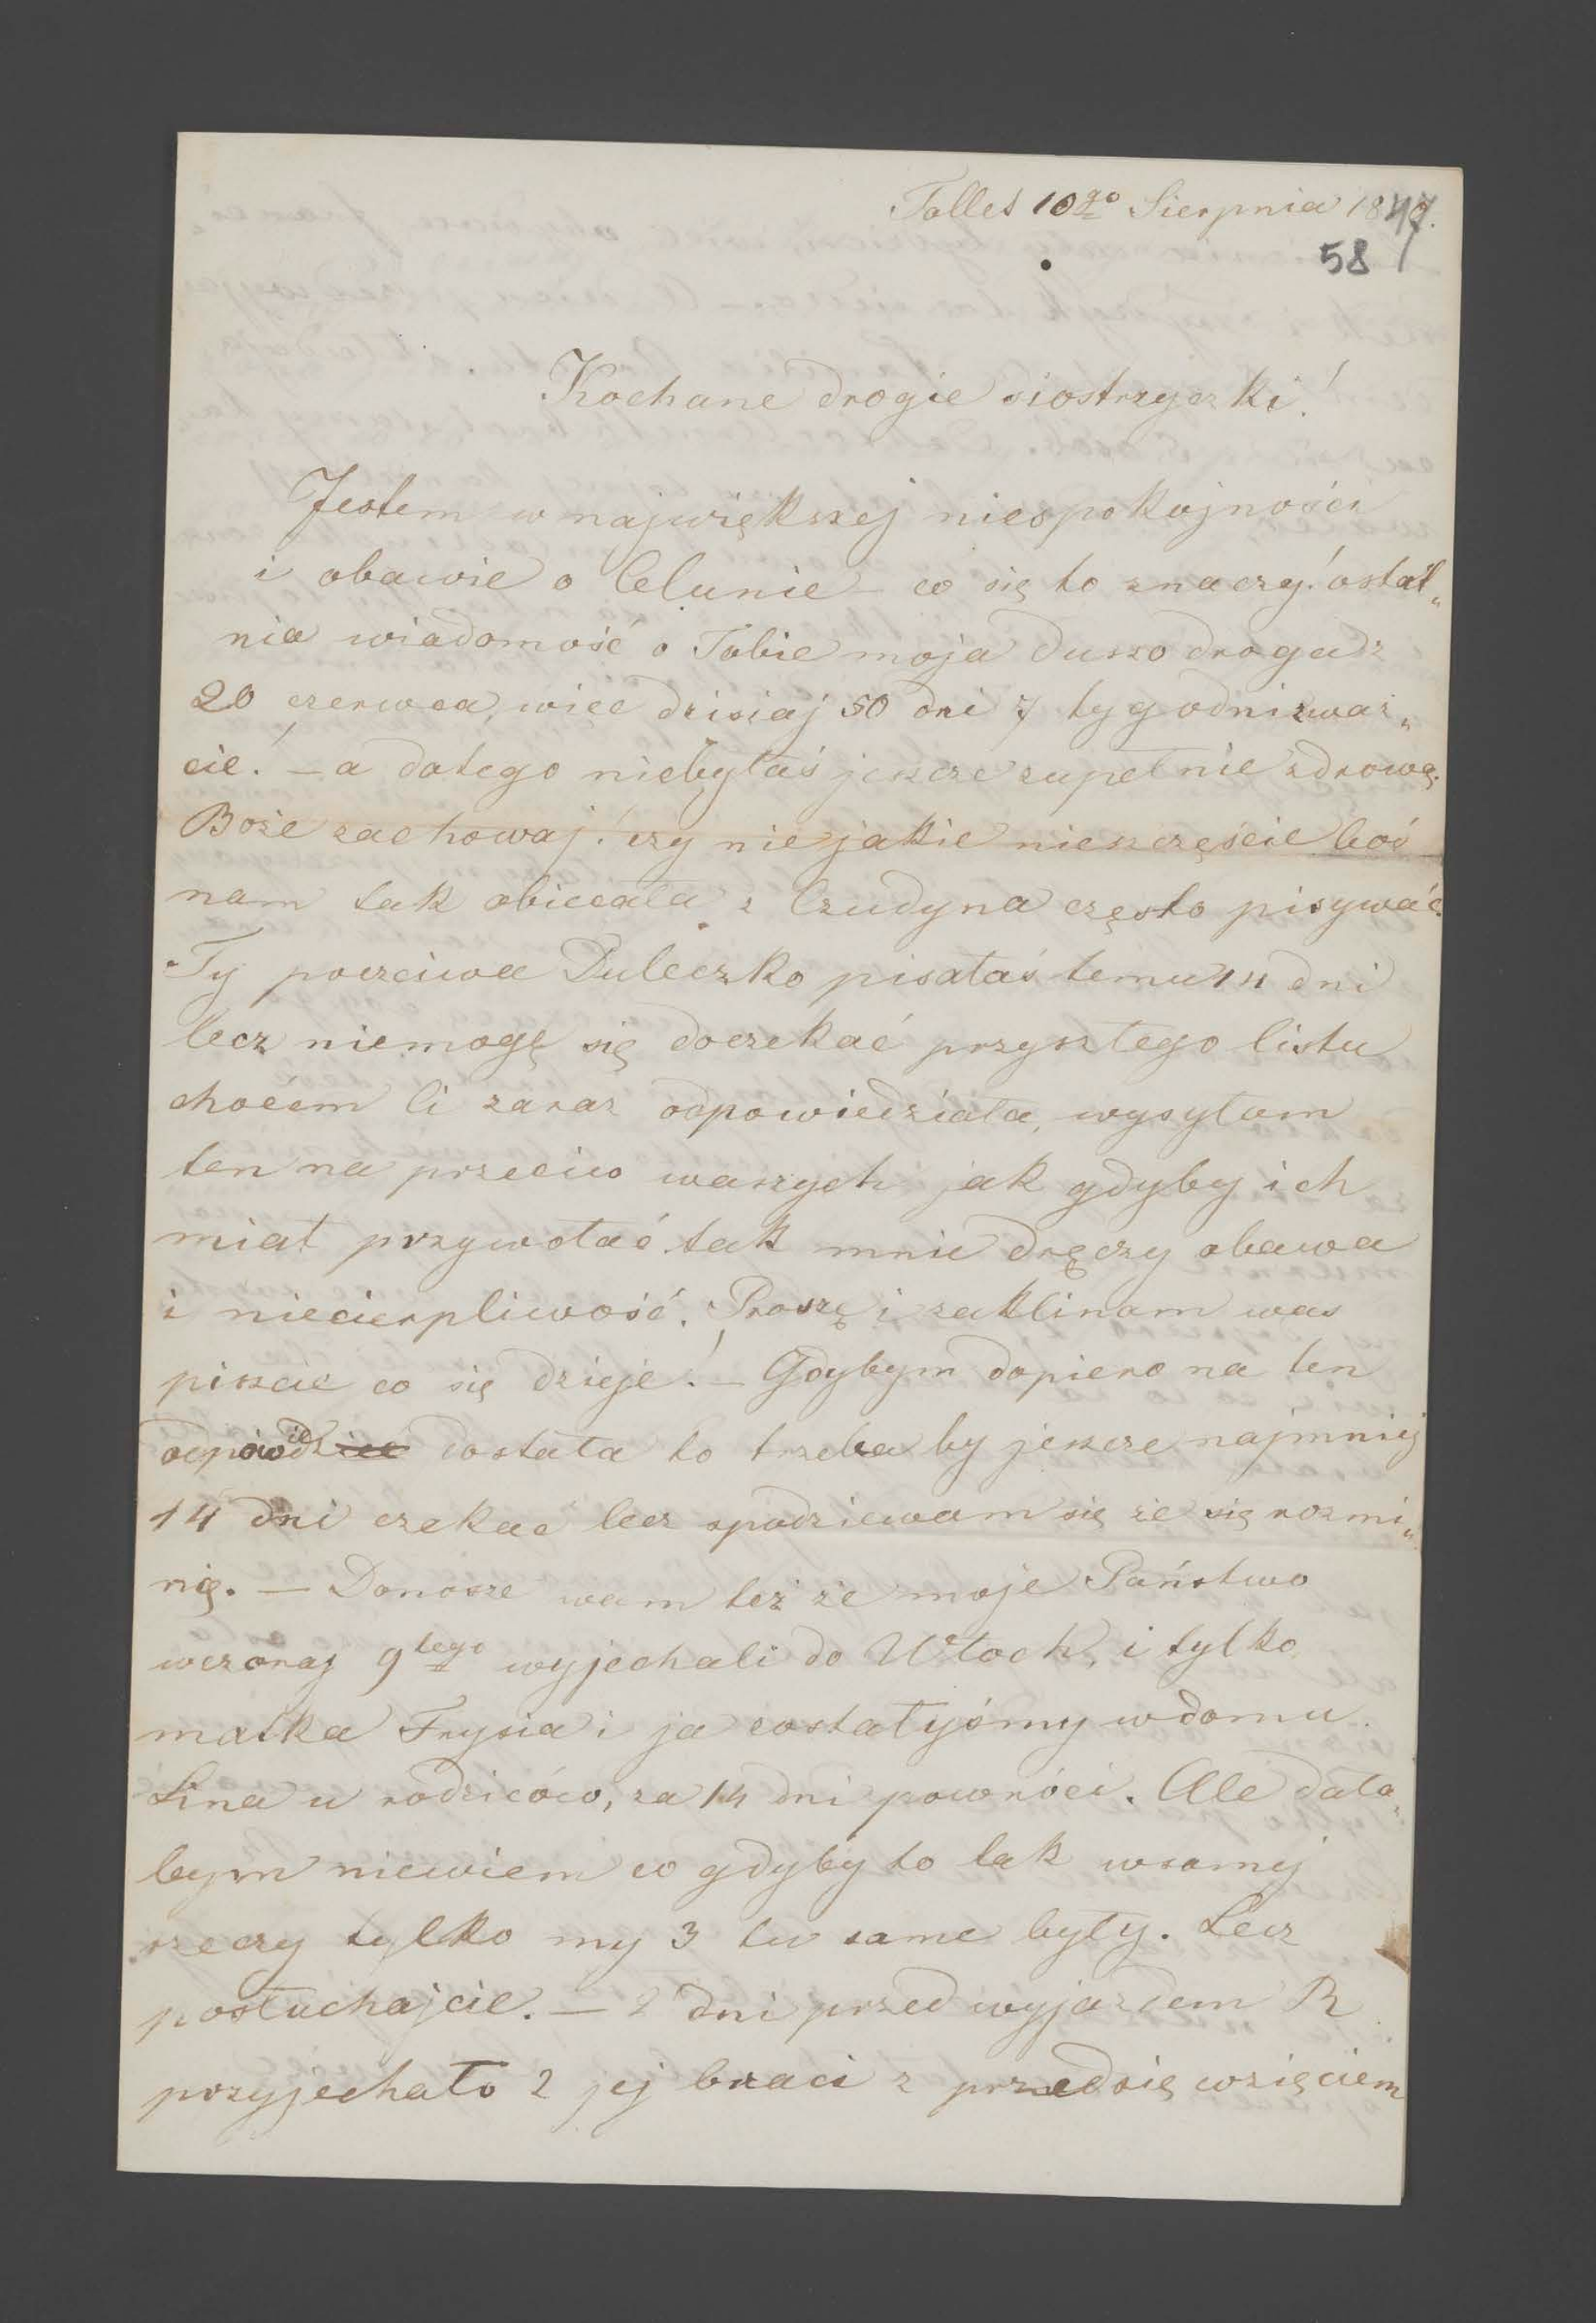 Tallet 10go Sierpnia 1847.
58
Kochane drogie siostrzyczki!
Jestem w największej niespokojności
i obawie o Celunie – co się to znaczy! ostat„
nia wiadomość o Tobie moja duszo droga z
20 czerwca, więc dzisiaj 50 dni 7 tygodni zważ„
cie! – a dotego niebyłaś jeszcze zupełnie zdrową.
Boże zachowaj! czy nie jakie nieszczęście boś
nam tak obiecała z Czudyna często pisywać.
Ty poczciwa Duleczko pisałaś temu 14 dni
lecz niemogę się doczekać przyszłego listu
choćem Ci zaraz odpowiedziała, wysyłam
ten na przeciw waszych jak gdyby ich
miał przywołać tak mnie dręczy obawa
i niecierpliwość. Proszę i zaklinam was
piszcie co się dzieje! – Gdybym dopiero na ten
odpowiedź dostała to trzeba by jeszcze najmniej
14 dni czekać lecz spodziewam się że się rozmi„
nią. – Donosze wam też że moje Państwo
wczoraj 9tego wyjechali do Włoch, i tylko
matka Frysia i ja zostałyśmy w domu.
Lina u rodziców, za 14 dni powróci. Ale dała„
bym niewiem co gdyby to tak wsamej
rzeczy tylko my 3 tu same były. Lecz
posłuchajcie. – 2 dni przed wyjazdem R
przyjechało 2 jej braci z przedsię wzięciem